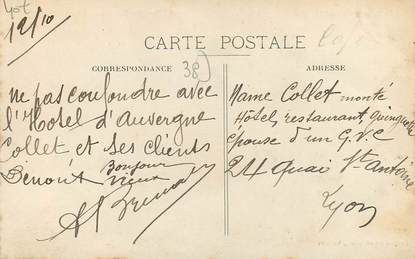 12/10
CARTE POSTALE
CORRESPONDANCE
38
ne pas confondre avec
l'Hotel d'Auvergne
Collet et ses clients
Benoit Bonjour
vieux
ADRESSE
Mame Collet monté
Hôtel, restaurant,
épouse d'un G.V.C
24 quai St Antoine
Lyon